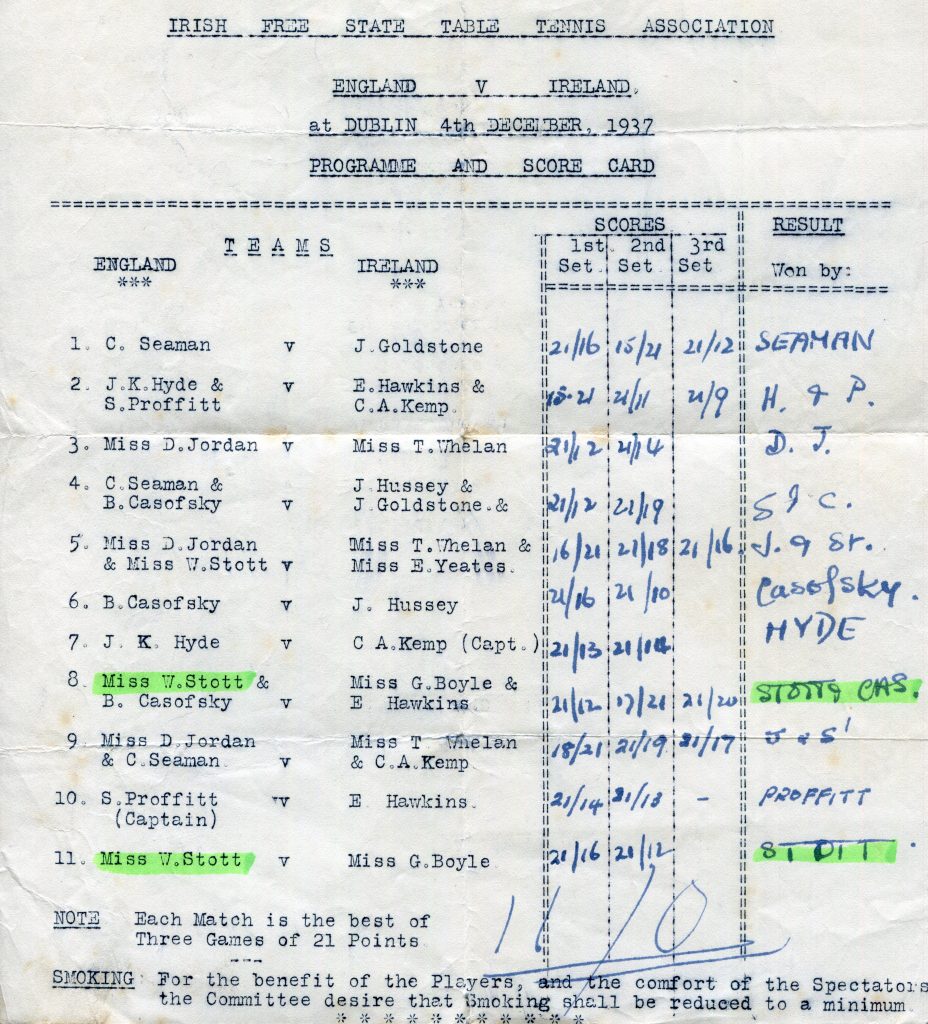 IRISH FREE STATE TABLE TENNIS ASSOCIATION
ENGLAND V IRELAND.
at DUBLIN 4th DECEMBER, 1937
PROGRAMME AND SCORE CARD
SCORES RESULT
T E A M S 1st 2nd 3rd
ENGLAND IRELAND Set. Set. Set Won by:
*** ***
1. C. Seaman v J.Goldstone 21/16 15/21 21/12 SEAMAN
2. J.K.Hyde & v E.Hawkins & 21/11 21/9 H. & P.
S.Proffitt C.A.Kemp.
3. Miss D.Jordan v Miss T.Whelan 21/12 21/14 D. J.
4. C.Seaman & J.Hussey &
B.Casofsky v J.Goldstone.& 21/12 21/19 S & C.
5. Miss D.Jordan Miss T.Whelan & 16/21 21/18 21/16. J. & St.
& Miss W.Stott v Miss E.Yeates.
6. B.Casofsky v J. Hussey 21/16 21/10 Casofsky.
7. J. K. Hyde v C A.Kemp (Capt.) 21/13 21/14 HYDE
8. Miss W.Stott & Miss G.Boyle & STOTT & CAS.
B. Casofsky v E Hawkins 21/12 17/21 21/20
9. Miss D.Jordan Miss T Whelan 18/21 21/19 21/17 J & S
& C.Seaman. v & C.A.Kemp.
10. S.Proffitt v E Hawkins. 21/14 21/13 - PROFFITT
(Captain)
11. Miss W.Stott v Miss G.Boyle. 21/16 21/12 STOTT.
11/0
NOTE Each Match is the best of
Three Games of 21 Points
SMOKING: For the benefit of the Players, and the comfort of the Spectators
the Committee desire that Smoking shall be reduced to a minimum.
* * * * * * * * * * *